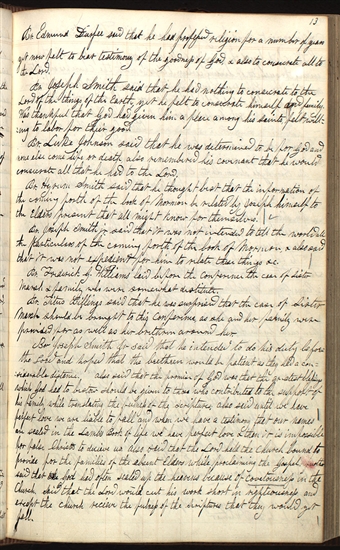 13
Br Edmund Durfee said that he had professed religion for a number of years
yet now felt to bear testimony of the goodness of God & also to consecrate all to
the Lord.
Br Joseph Smith said that he had nothing to consecrate to the
Lord of the things of the Earth, yet he felt to consecrate himself and family.
Was thankful that God had given him a place among his saints felt will-
ing to labor for their good
Br Luke Johnson said that he was determined to be for God and
none else come life or death also remembered his covenant that he would
consecrate all that he had to the Lord.
Br Hyrum Smith said that he thought best that the information of
the coming forth of the book of Mormon be related by Joseph himself to
the Elders present that all might know for themselves.
Br Joseph Smith jr. said that it was not intended to tell the world all
the particulars of the coming forth of the book of Mormon, & also said
that it was not expedient for him to relate these things &c.
Br Frederick G. Williams laid before the conference the case of Sister
Marsh & family who were somewhat destitute.
Br Titus Billings said that he was surprised that the case of Sister
Marsh should be brought to this conference as she and her family were
provided for as well as her brethren around her.
Br Joseph Smith jr. said that he intended to do his duty before
the Lord and hoped that the brethren would be patient as they had a con-
siderable distance, also said that the promise of God was that the greatest blessings
which God had to bestow should be given to those who contributed to the support of
his family while translating the fulness of the Scriptures, also said until we have
perfect love we are liable to fall and when we have a testimony that our names
are sealed in the Lamb's Book of life we have perfect love & then it is impossible
for false Christs to deceive us. also said that the Lord held the Church bound to
provide for the families of the absent Elders while proclaiming the Gospel:
said that God had often sealed up the heavens because of covetousness in the
Church. said that the Lord would cut his work short in righteousness and
except the church receive the fulness of the Scriptures that they would yet
fall.